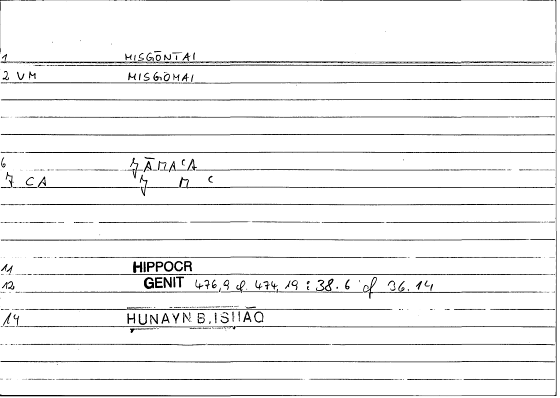 1 MISGŌNTAI
2 VM MISGOMAI
6 ĀMACA
7 CA M C
11 HIPPOCR
12 GENIT 476,9 cf 474,19 : 38.6 cf 36.14
14 HUNAYN B. ISḤĀQ